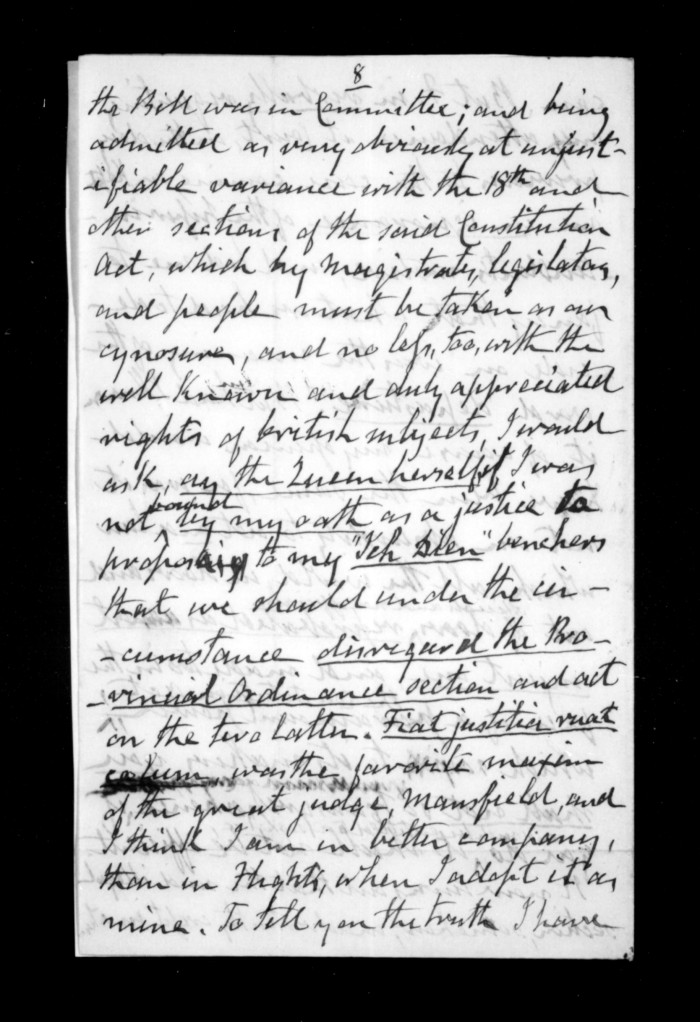 8
the Bill was in Committee; and being
admitted as very obviously at unjust-
-ifiable variance with the 18th and
other sections of the said Constitution
Act, which by magistrates, legislators,
and people must be taken as our
cynosure, and no less, too, with the
well known and duly appreciated
rights of British subjects, I would
ask, ay the Queen herself, if I was
not bound by my oath as a justice to
proposing to my "Ich Dien" benchers
that we should under the cir-
-cumstance disregard the Pro-
-vincial Ordinance section and act
on the two latter. Fiat justitia ruat
cælum, was the favorite maxim
of the great judge, Mansfield, and
I think I am in better company,
than in when I adopt it as
mine. To tell you the truth I have